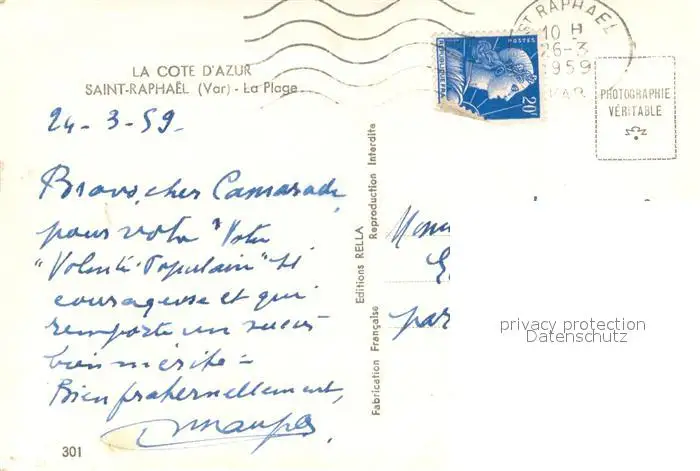 LA COTE D'AZUR
SAINT-RAPHAËL (Var) - La Plage
24-3-59.
Bravo, cher Camarade,
pour votre "Votre
"Volonté Populaire" si
courageuse et qui
remporte un succès
bien mérité =
Bien fraternellement,
301
Editions RELLA
Fabrication Française Reproduction Interdite
ST RAPHAEL
10 H
26-3
1959
VAR
POSTES
20F
PHOTOGRAPHIE
VÉRITABLE
par
privacy protection
Datenschutz